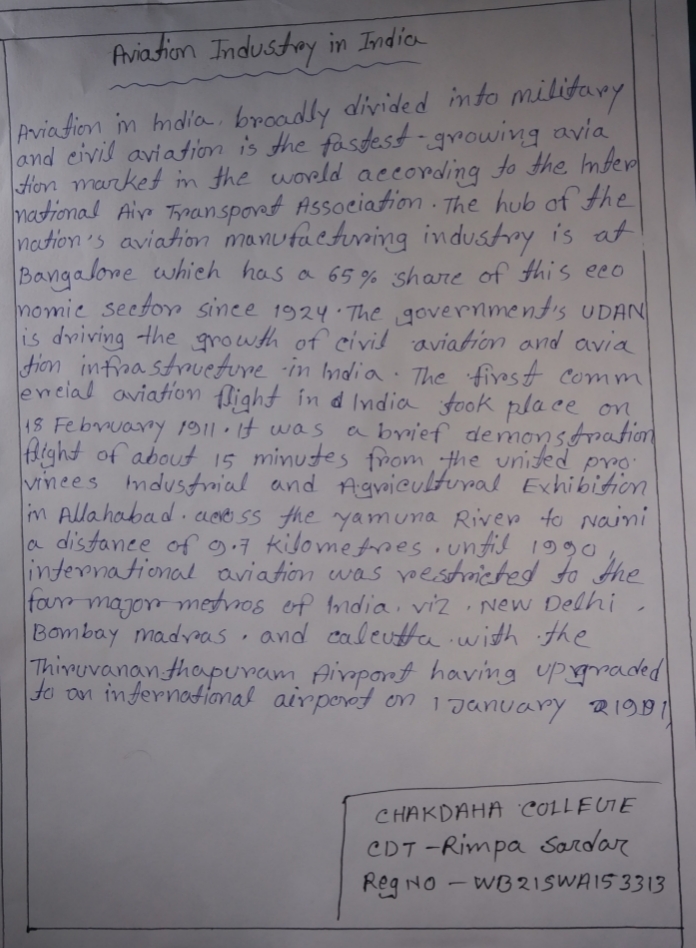 Aviation Industry in India
Aviation in India, broadly divided into military
and civil aviation is the fastest-growing avia
tion market in the world according to the Inter
national Air Transport Association. The hub of the
nation's aviation manufacturing industry is at
Bangalore which has a 65% share of this eco
nomic sector since 1924. The government's UDAN
is driving the growth of civil aviation and avia
tion infrastructure in India. The first comm
ercial aviation flight in d India took place on
18 February 1911. It was a brief demonstration
flight of about 15 minutes from the united pro
vinces Industrial and Agricultural Exhibition
in Allahabad. across the yamuna River to Naini
a distance of 9.7 kilometres. until 1990,
international aviation was restricted to the
four major metros of India. viz. New Delhi,
Bombay madras, and calcutta with the
Thiruvananthapuram Airport having upgraded
to an international airport on 1 January 1991
CHAKDAHA COLLEGE
CDT-Rimpa Sardar
Reg NO - WB21SWA153313